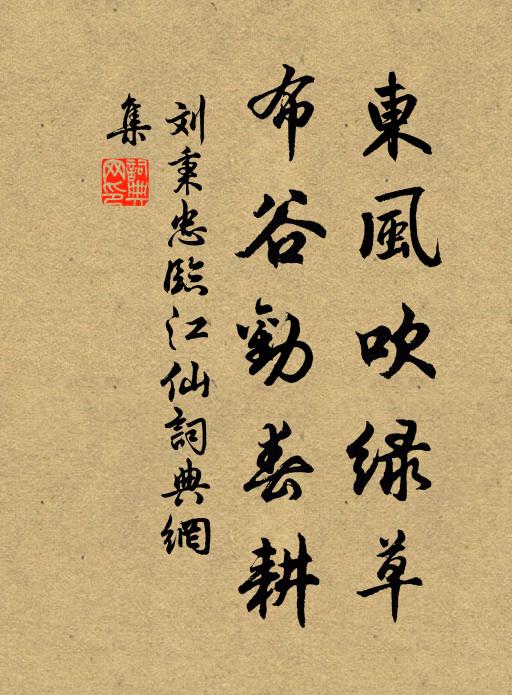 東風吹绿草
布谷勸春耕
刘秉忠臨江仙詞典網
集
詞典网印